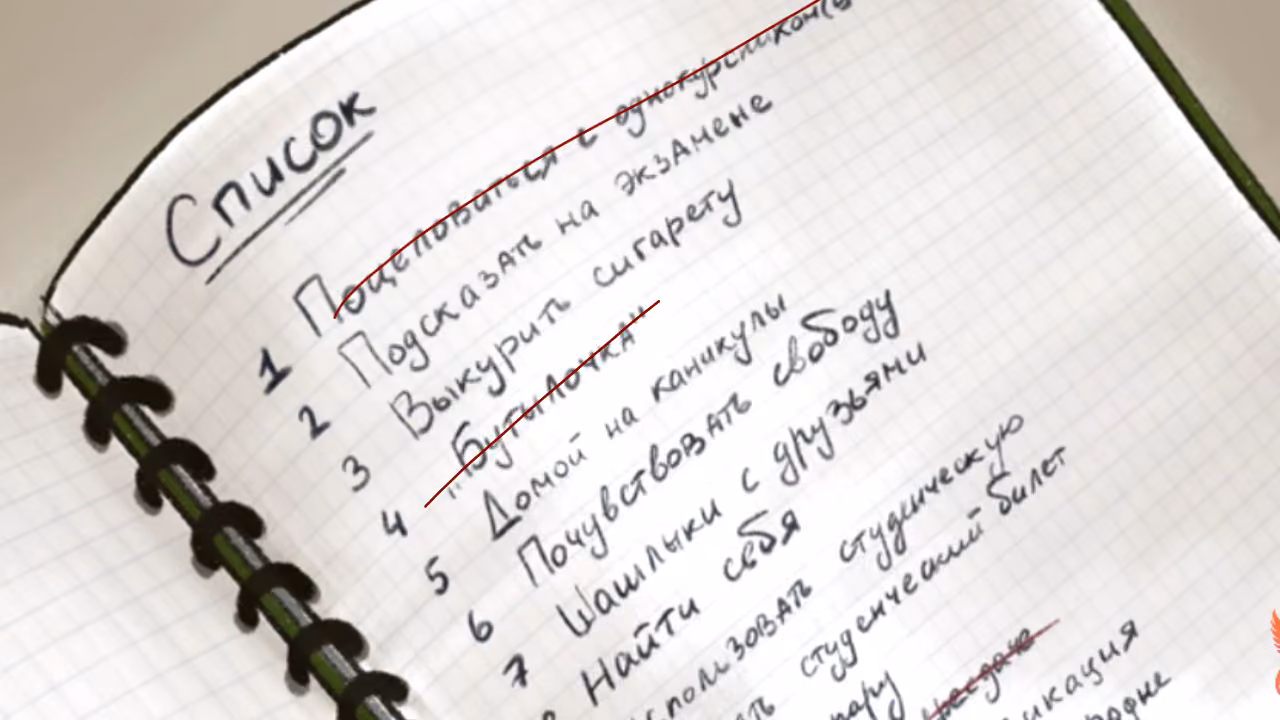 Список
1 Поцеловаться с однокурсником(
2 Подсказать на экзамене
3 Выкурить сигарету
4 "Бутылочка"
5 Домой на каникулы
6 Почувствовать свободу
7 Шашлыки с друзьями
Найти себя
студенческую
студенческий билет
пару